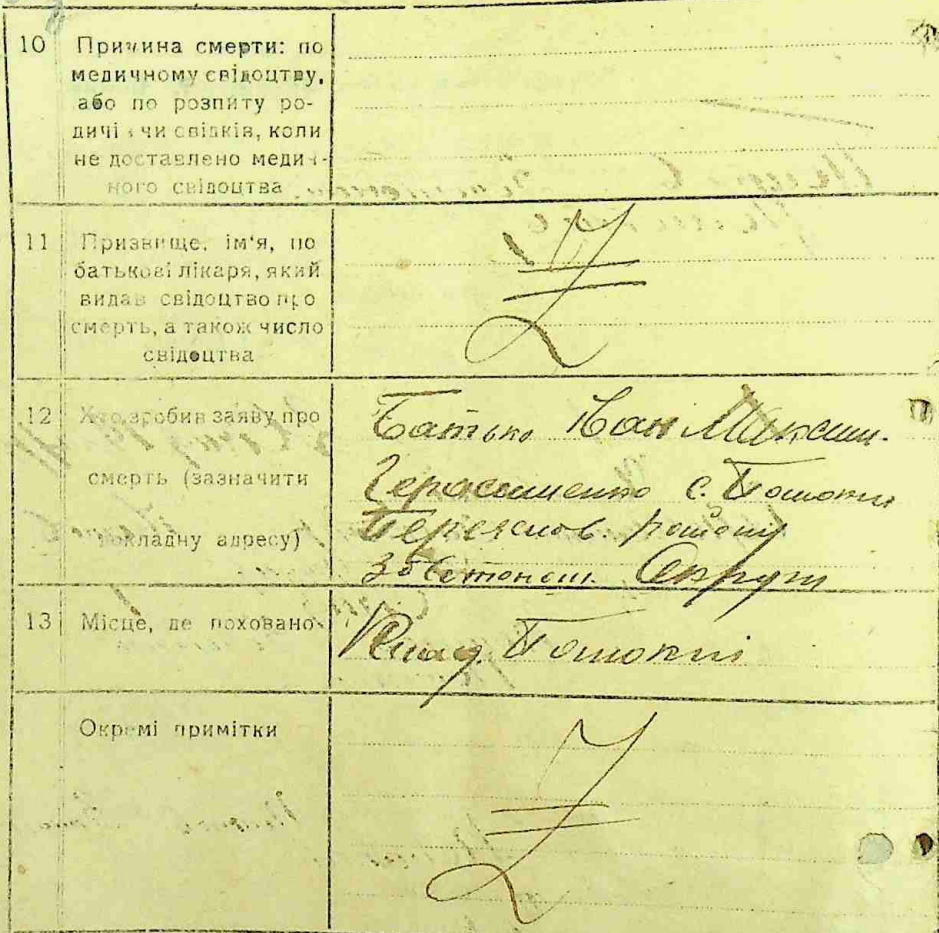 10 Причина смерти: по
медичному свідоцтву,
або по розпиту ро-
дичів чи свідків, коли
не доставлено медич-
ного свідоцтва
11 Призвище, ім'я, по
батькові лікаря, який
видав свідоцтво про
смерть, а також число
свідоцтва
12 Хто зробив заяву про
смерть (зазначити
докладну адресу)
Батько Іван Максим.
Герасименко с. Помокли
Переяслов. району
Округи
13 Місце, де поховано
Клад. Помокли
Окремі примітки